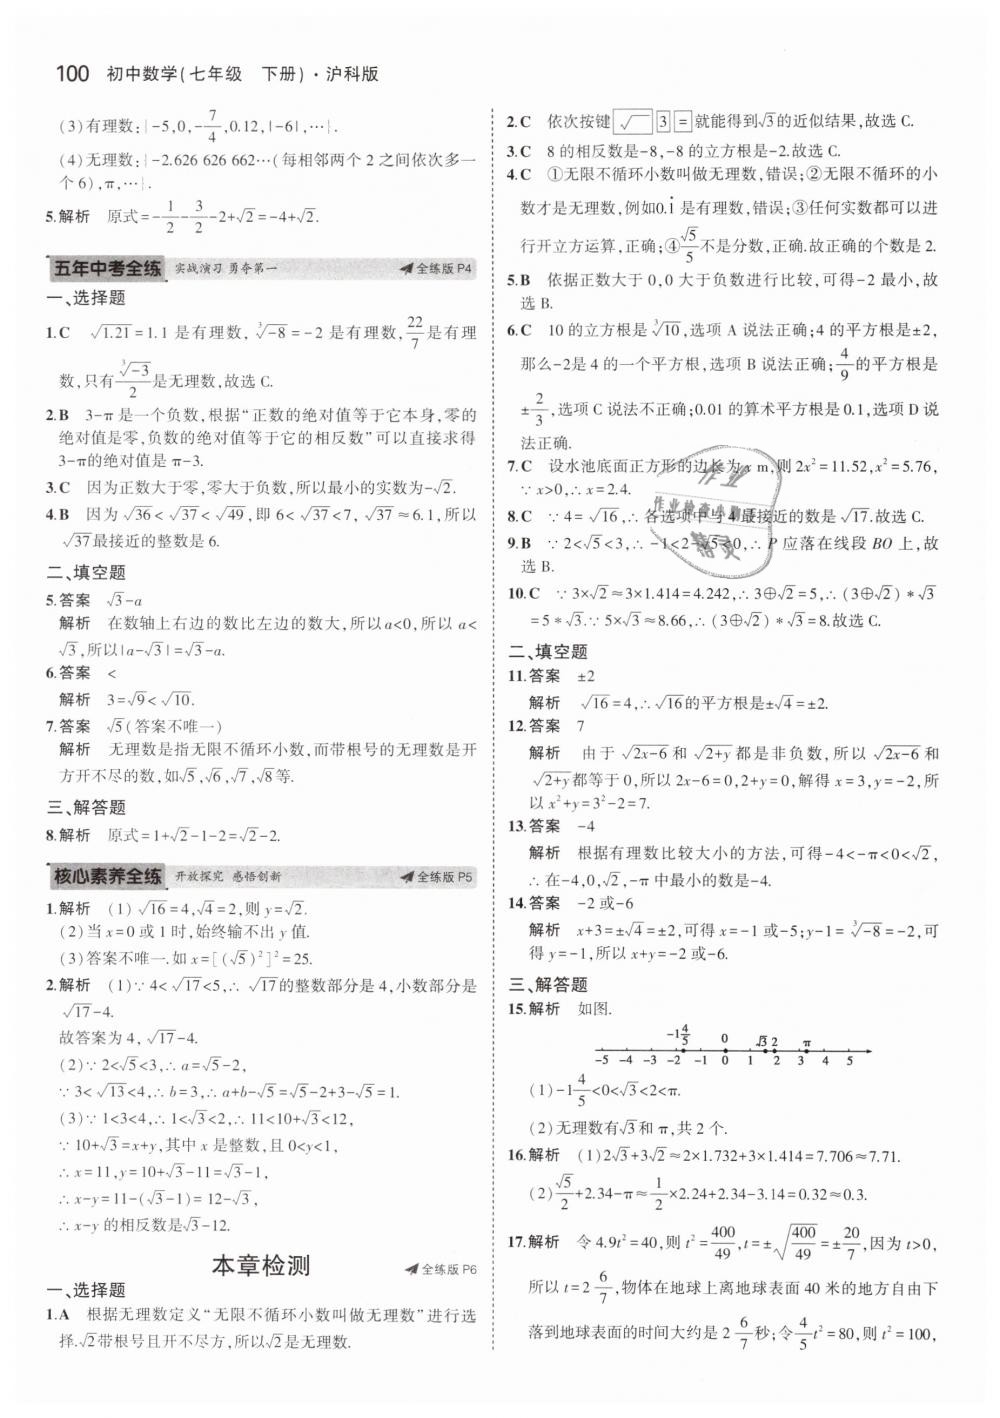 100 初中数学(七年级 下册)·沪科版
(3)有理数:{-5,0,-7/4,0.12,|-6|,…}.
(4)无理数:{-2.626 626 662…(每相邻两个 2 之间依次多一
个6),π,…}.
5.解析 原式=-1/2-3/2-2+√2=-4+√2.
五年中考全练 实战演习 勇夺第一 全练版 P4
一、选择题
1.C √1.21=1.1 是有理数,∛-8=-2 是有理数,22/7是有理
数,只有∛-3/2是无理数,故选 C.
2.B 3-π 是一个负数,根据“正数的绝对值等于它本身,零的
绝对值是零,负数的绝对值等于它的相反数”可以直接求得
3-π的绝对值是 π-3.
3.C 因为正数大于零,零大于负数,所以最小的实数为-√2.
4.B 因为 √36<√37<√49,即 6<√37<7,√37≈6.1,所以
√37最接近的整数是 6.
二、填空题
5.答案 √3-a
解析 在数轴上右边的数比左边的数大,所以 a<0,所以 a<
√3,所以|a-√3|=√3-a.
6.答案 <
解析 3=√9<√10.
7.答案 √5(答案不唯一)
解析 无理数是指无限不循环小数,而带根号的无理数是开
方开不尽的数,如√5,√6,√7,√8等.
三、解答题
8.解析 原式=1+√2-1-2=√2-2.
核心素养全练 开放探究 感悟创新 全练版 P5
1.解析 (1)√16=4,√4=2,则 y=√2.
(2)当 x=0 或 1 时,始终输不出 y 值.
(3)答案不唯一.如 x=[(√5)²]²=25.
2.解析 (1)∵4<√17<5,∴√17的整数部分是 4,小数部分是
√17-4.
故答案为 4,√17-4.
(2)∵2<√5<3,∴a=√5-2,
∵3<√13<4,∴b=3,∴a+b-√5=√5-2+3-√5=1.
(3)∵1<3<4,∴1<√3<2,∴11<10+√3<12,
∵10+√3=x+y,其中 x 是整数,且 0<y<1,
∴x=11,y=10+√3-11=√3-1,
∴x-y=11-(√3-1)=12-√3,
∴x-y 的相反数是√3-12.
本章检测 全练版 P6
一、选择题
1.A 根据无理数定义“无限不循环小数叫做无理数”进行选
择.√2带根号且开不尽方,所以√2是无理数.
2.C 依次按键 √ 3 = 就能得到√3的近似结果,故选 C.
3.C 8 的相反数是-8,-8 的立方根是-2.故选 C.
4.C ①无限不循环小数叫做无理数,错误;②无限不循环的小
数才是无理数,例如0.1̇ 是有理数,错误;③任何实数都可以进
行开立方运算,正确;④√5/5不是分数,正确.故正确的个数是 2.
5.B 依据正数大于 0,0 大于负数进行比较,可得-2 最小,故
选 B.
6.C 10 的立方根是 ∛10,选项 A 说法正确;4 的平方根是±2,
那么-2是 4 的一个平方根,选项 B 说法正确;4/9的平方根是
±2/3,选项 C 说法不正确;0.01 的算术平方根是 0.1,选项 D 说
法正确.
7.C 设水池底面正方形的边长为 x m,则 2x²=11.52,x²=5.76,
∵x>0,∴x=2.4.
8.C ∵4=√16,∴各选项中与 4 最接近的数是 √17.故选 C.
9.B ∵2<√5<3,∴-1<2-√5<0,∴P 应落在线段 BO 上,故
选 B.
10.C ∵3×√2≈3×1.414=4.242,∴3⊕√2=5,∴(3⊕√2)*√3
=5*√3.∵5×√3≈8.66,∴(3⊕√2)*√3=8.故选 C.
二、填空题
11.答案 ±2
解析 √16=4,∴√16的平方根是±√4=±2.
12.答案 7
解析 由于 √2x-6 和 √2+y 都是非负数,所以 √2x-6 和
√2+y都等于 0,所以 2x-6=0,2+y=0,解得 x=3,y=-2,所
以 x²+y=3²-2=7.
13.答案 -4
解析 根据有理数比较大小的方法,可得-4<-π<0<√2,
∴在-4,0,√2,-π 中最小的数是-4.
14.答案 -2 或-6
解析 x+3=±√4=±2,可得 x=-1 或-5;y-1=∛-8=-2,可
得 y=-1,所以 x+y=-2 或-6.
三、解答题
15.解析 如图.
-1 4/5 0 √3 2 π
-5 -4 -3 -2 -1 0 1 2 3 4 5
(1)-1 4/5<0<√3<2<π.
(2)无理数有√3和 π,共 2 个.
16.解析 (1)2√3+3√2≈2×1.732+3×1.414=7.706≈7.71.
(2)√5/2+2.34-π≈1/2×2.24+2.34-3.14=0.32≈0.3.
17.解析 令 4.9t²=40,则 t²=400/49,t=±√(400/49)=±20/7,因为 t>0,
所以 t=2 6/7,物体在地球上离地球表面 40 米的地方自由下
落到地球表面的时间大约是 2 6/7 秒;令4/5t²=80,则 t²=100,